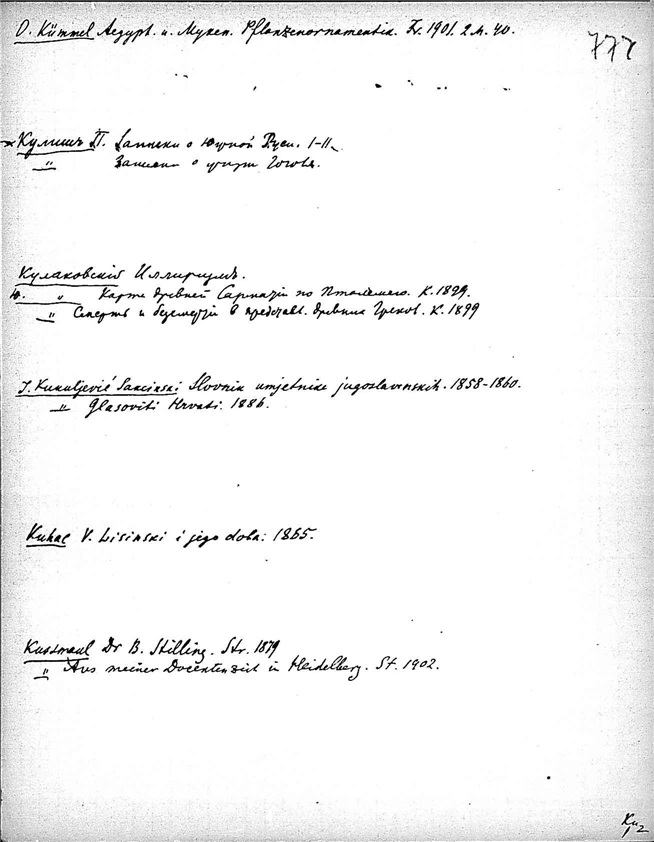 O. Kümmel Aegypt. u. Myken. Pflanzenornamentik. Fr. 1901. 2 M. 40.
777
Кулишъ П. Записки о Южной Руси. I-II.
" Записки о жизни Гоголя.
Кулаковскій Иллирикумъ.
Ю. " Карта древней Сарматіи по Птолемею. К. 1899.
" Смерть и безсмертіе в представ. древних Греков. К. 1899
I. Kukuljević Sakcinski Slovnik umjetnika jugoslavenskih. 1858-1860.
" Glasoviti Hrvati. 1886.
Kuhač V. Lisinski i jego doba. 1885.
Kussmaul Dr B. Stilling. Str. 1879
" Aus meiner Docentenzeit in Heidelberg. St. 1902.
Ku 2